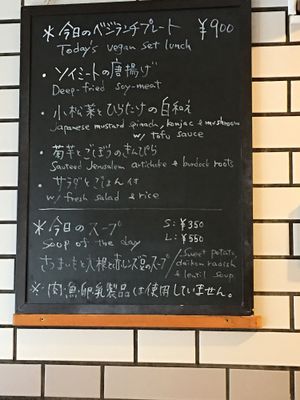 ＊今日のベジランチプレート ¥900
Today's vegan set lunch
・ソイミートの唐揚げ
Deep-fried soy-meat
・小松菜とひらたけの白和え
Japanese mustard spinach, konjac & mushrooms
w/ tofu sauce
・菊芋とごぼうのきんぴら
Sauteed Jerusalem artichoke & burdock roots
・サラダとごはん付
w/ fresh salad & rice
＊今日のスープ S: ¥350
Soup of the day L: ¥550
さつまいもと大根と赤レンズ豆のスープ
/ Sweet potato, daikon radish & lentil soup
※肉・魚・卵・乳製品は使用していません。